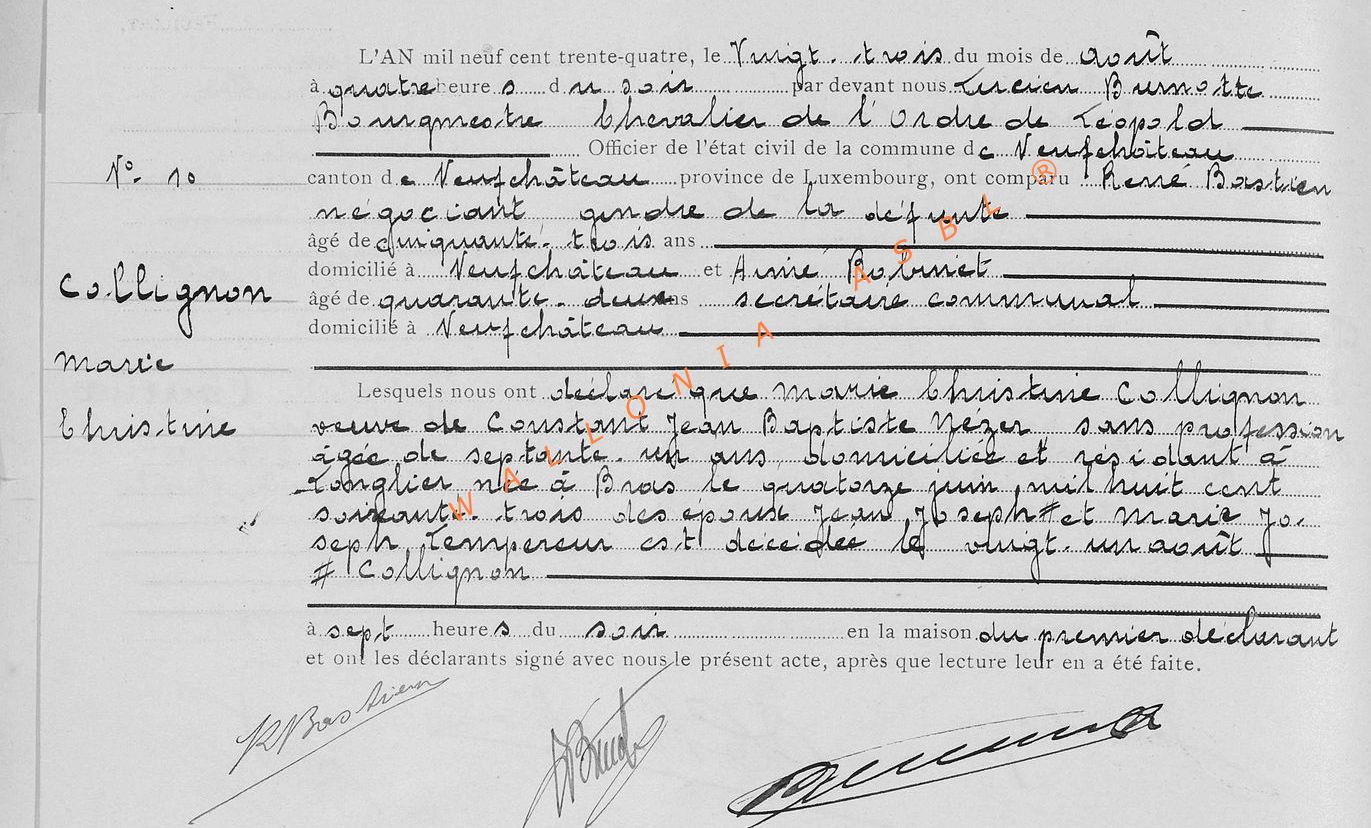 L'AN mil neuf cent trente-quatre, le Vingt-trois du mois de août
à quatre heures du soir par devant nous Lucien Burnotte
Bourgmestre Chevalier de l'Ordre de Léopold
Officier de l'état civil de la commune de Neufchâteau
N° 10
canton de Neufchâteau province de Luxembourg, ont comparu René Bastien
négociant gendre de la défunte
âgé de cinquante-trois ans
domicilié à Neufchâteau et Aimé
Collignon
âgé de quarante-deux ans secrétaire communal
domicilié à Neufchâteau
Marie
Lesquels nous ont déclaré que Marie Christine Collignon
Christine
veuve de Constant Jean Baptiste Nézer sans profession
âgée de septante-un ans, domiciliée et résidant à
Longlier née à Bras le quatorze juin mil huit cent
soixante-trois des époux Jean Joseph # et Marie Jo-
seph Lempereur est décédée le vingt-un août
# Collignon
à sept heures du soir en la maison du premier déclarant
et ont les déclarants signé avec nous le présent acte, après que lecture leur en a été faite.
RBastien
WALLONIA ASBL ®